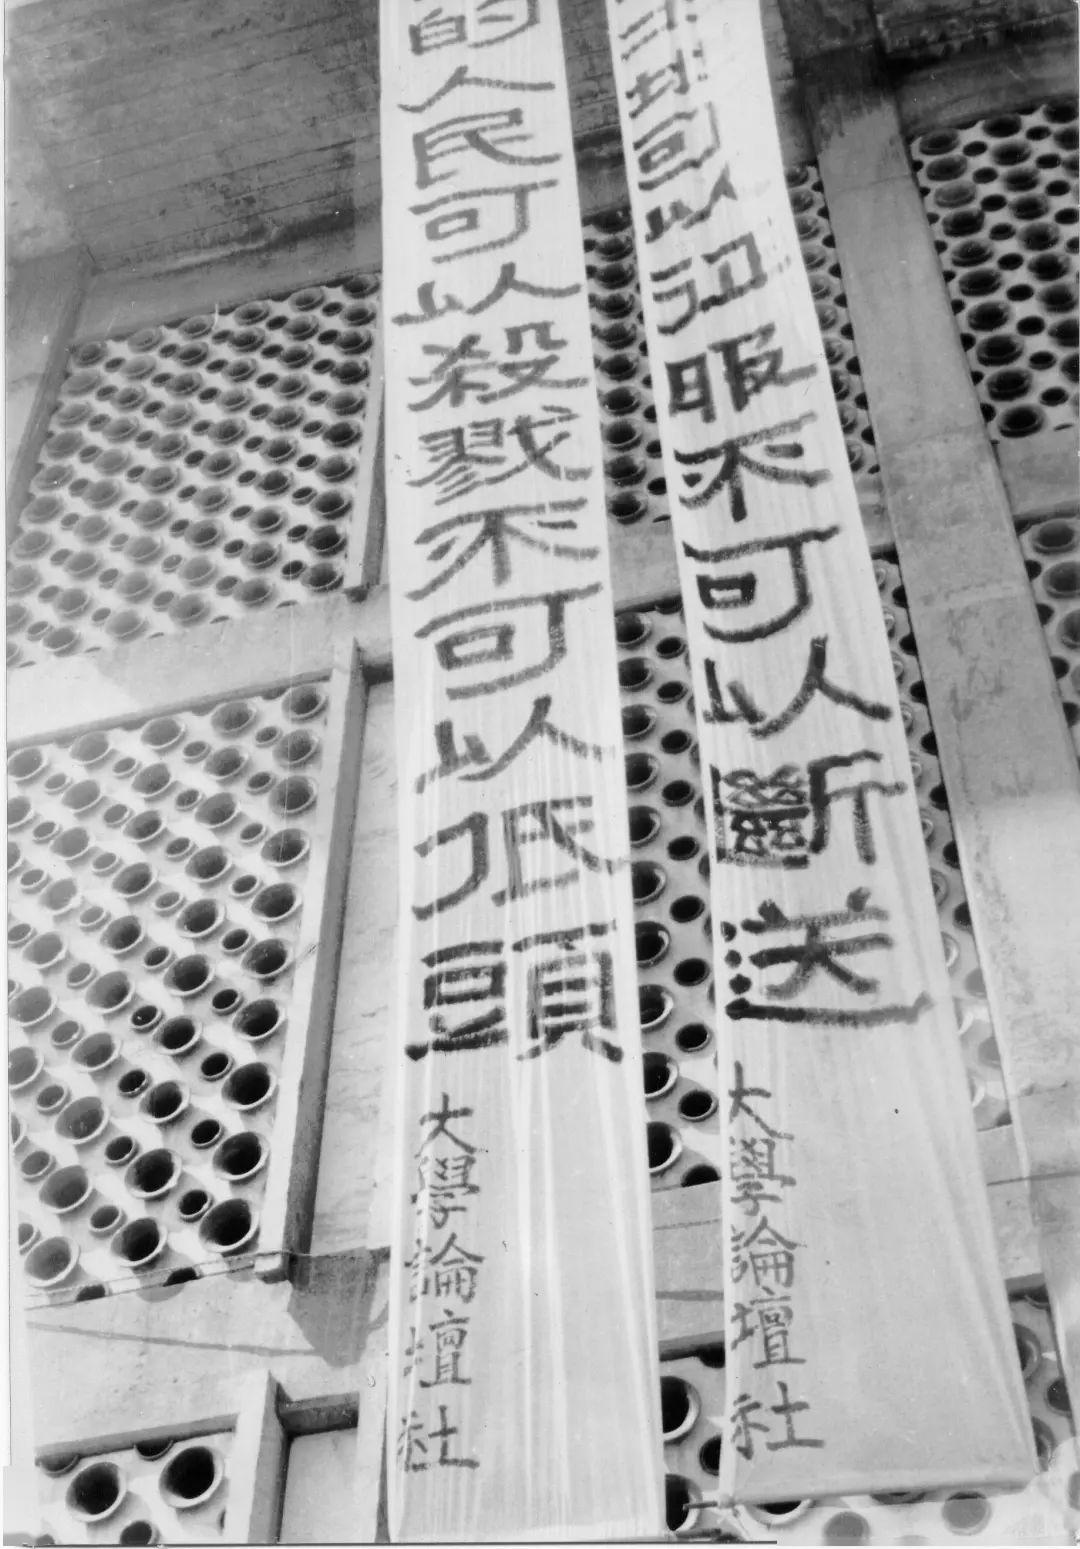 土地可以征服不可以斷送
大學論壇社
的人民可以殺戮不可以低頭
大學論壇社